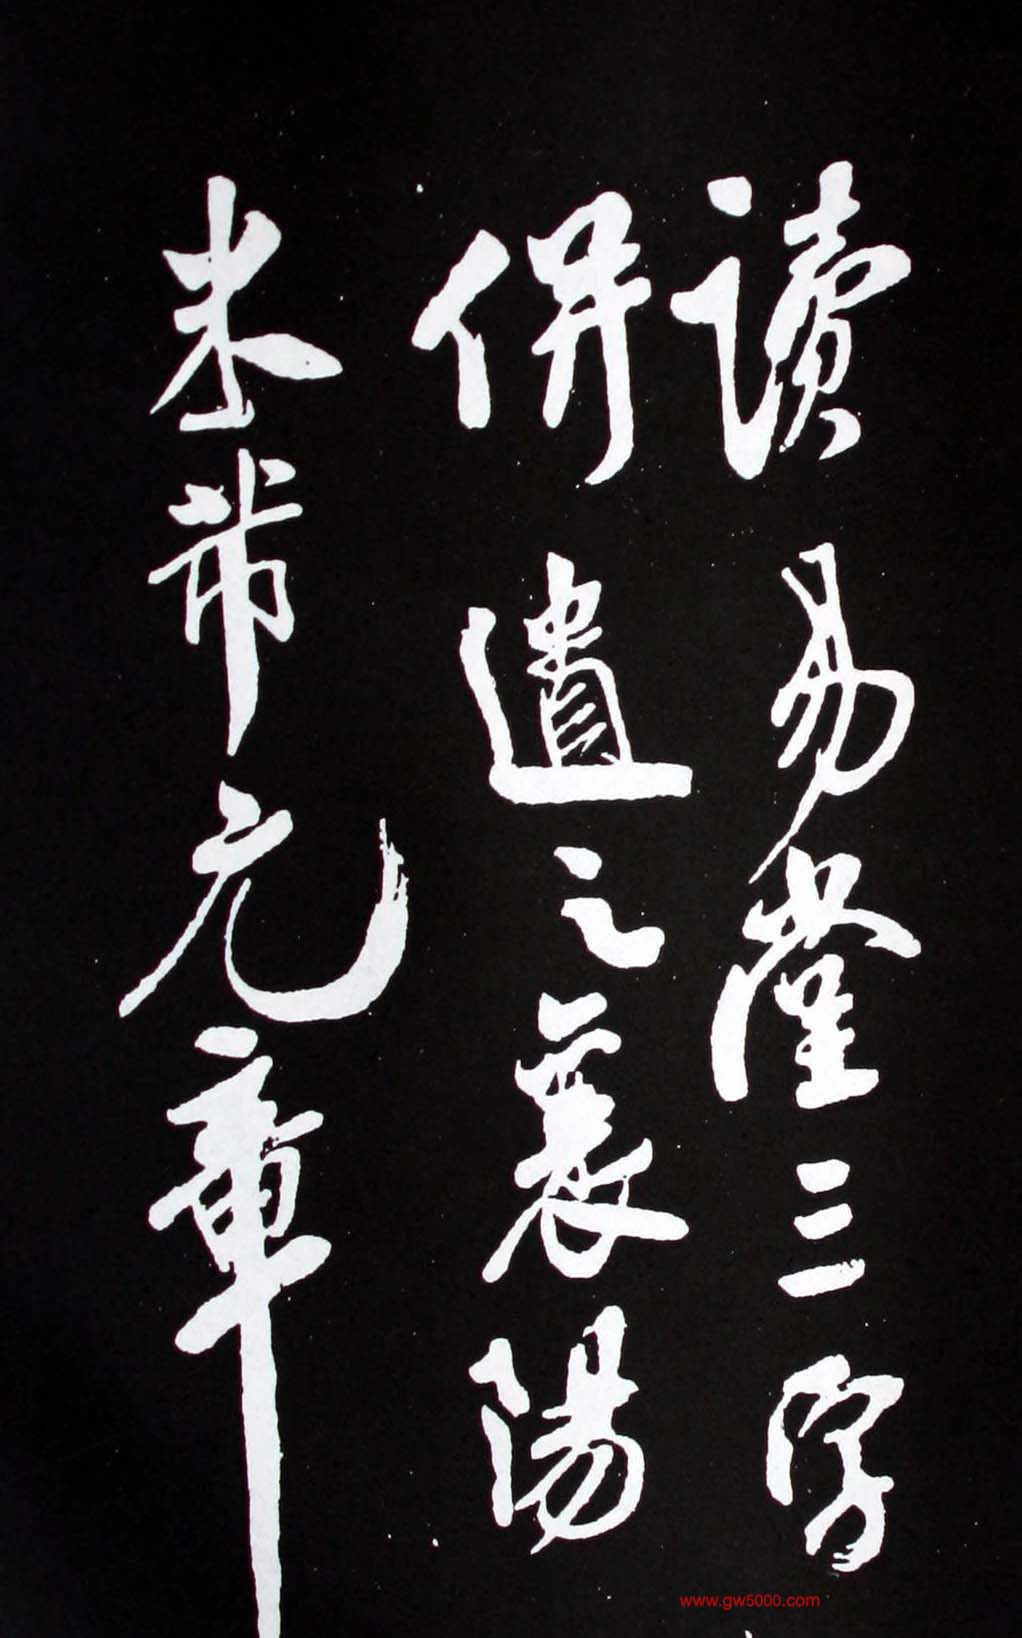 讀易堂三字
併遺之襄陽
米芾元章
www.gw5000.com